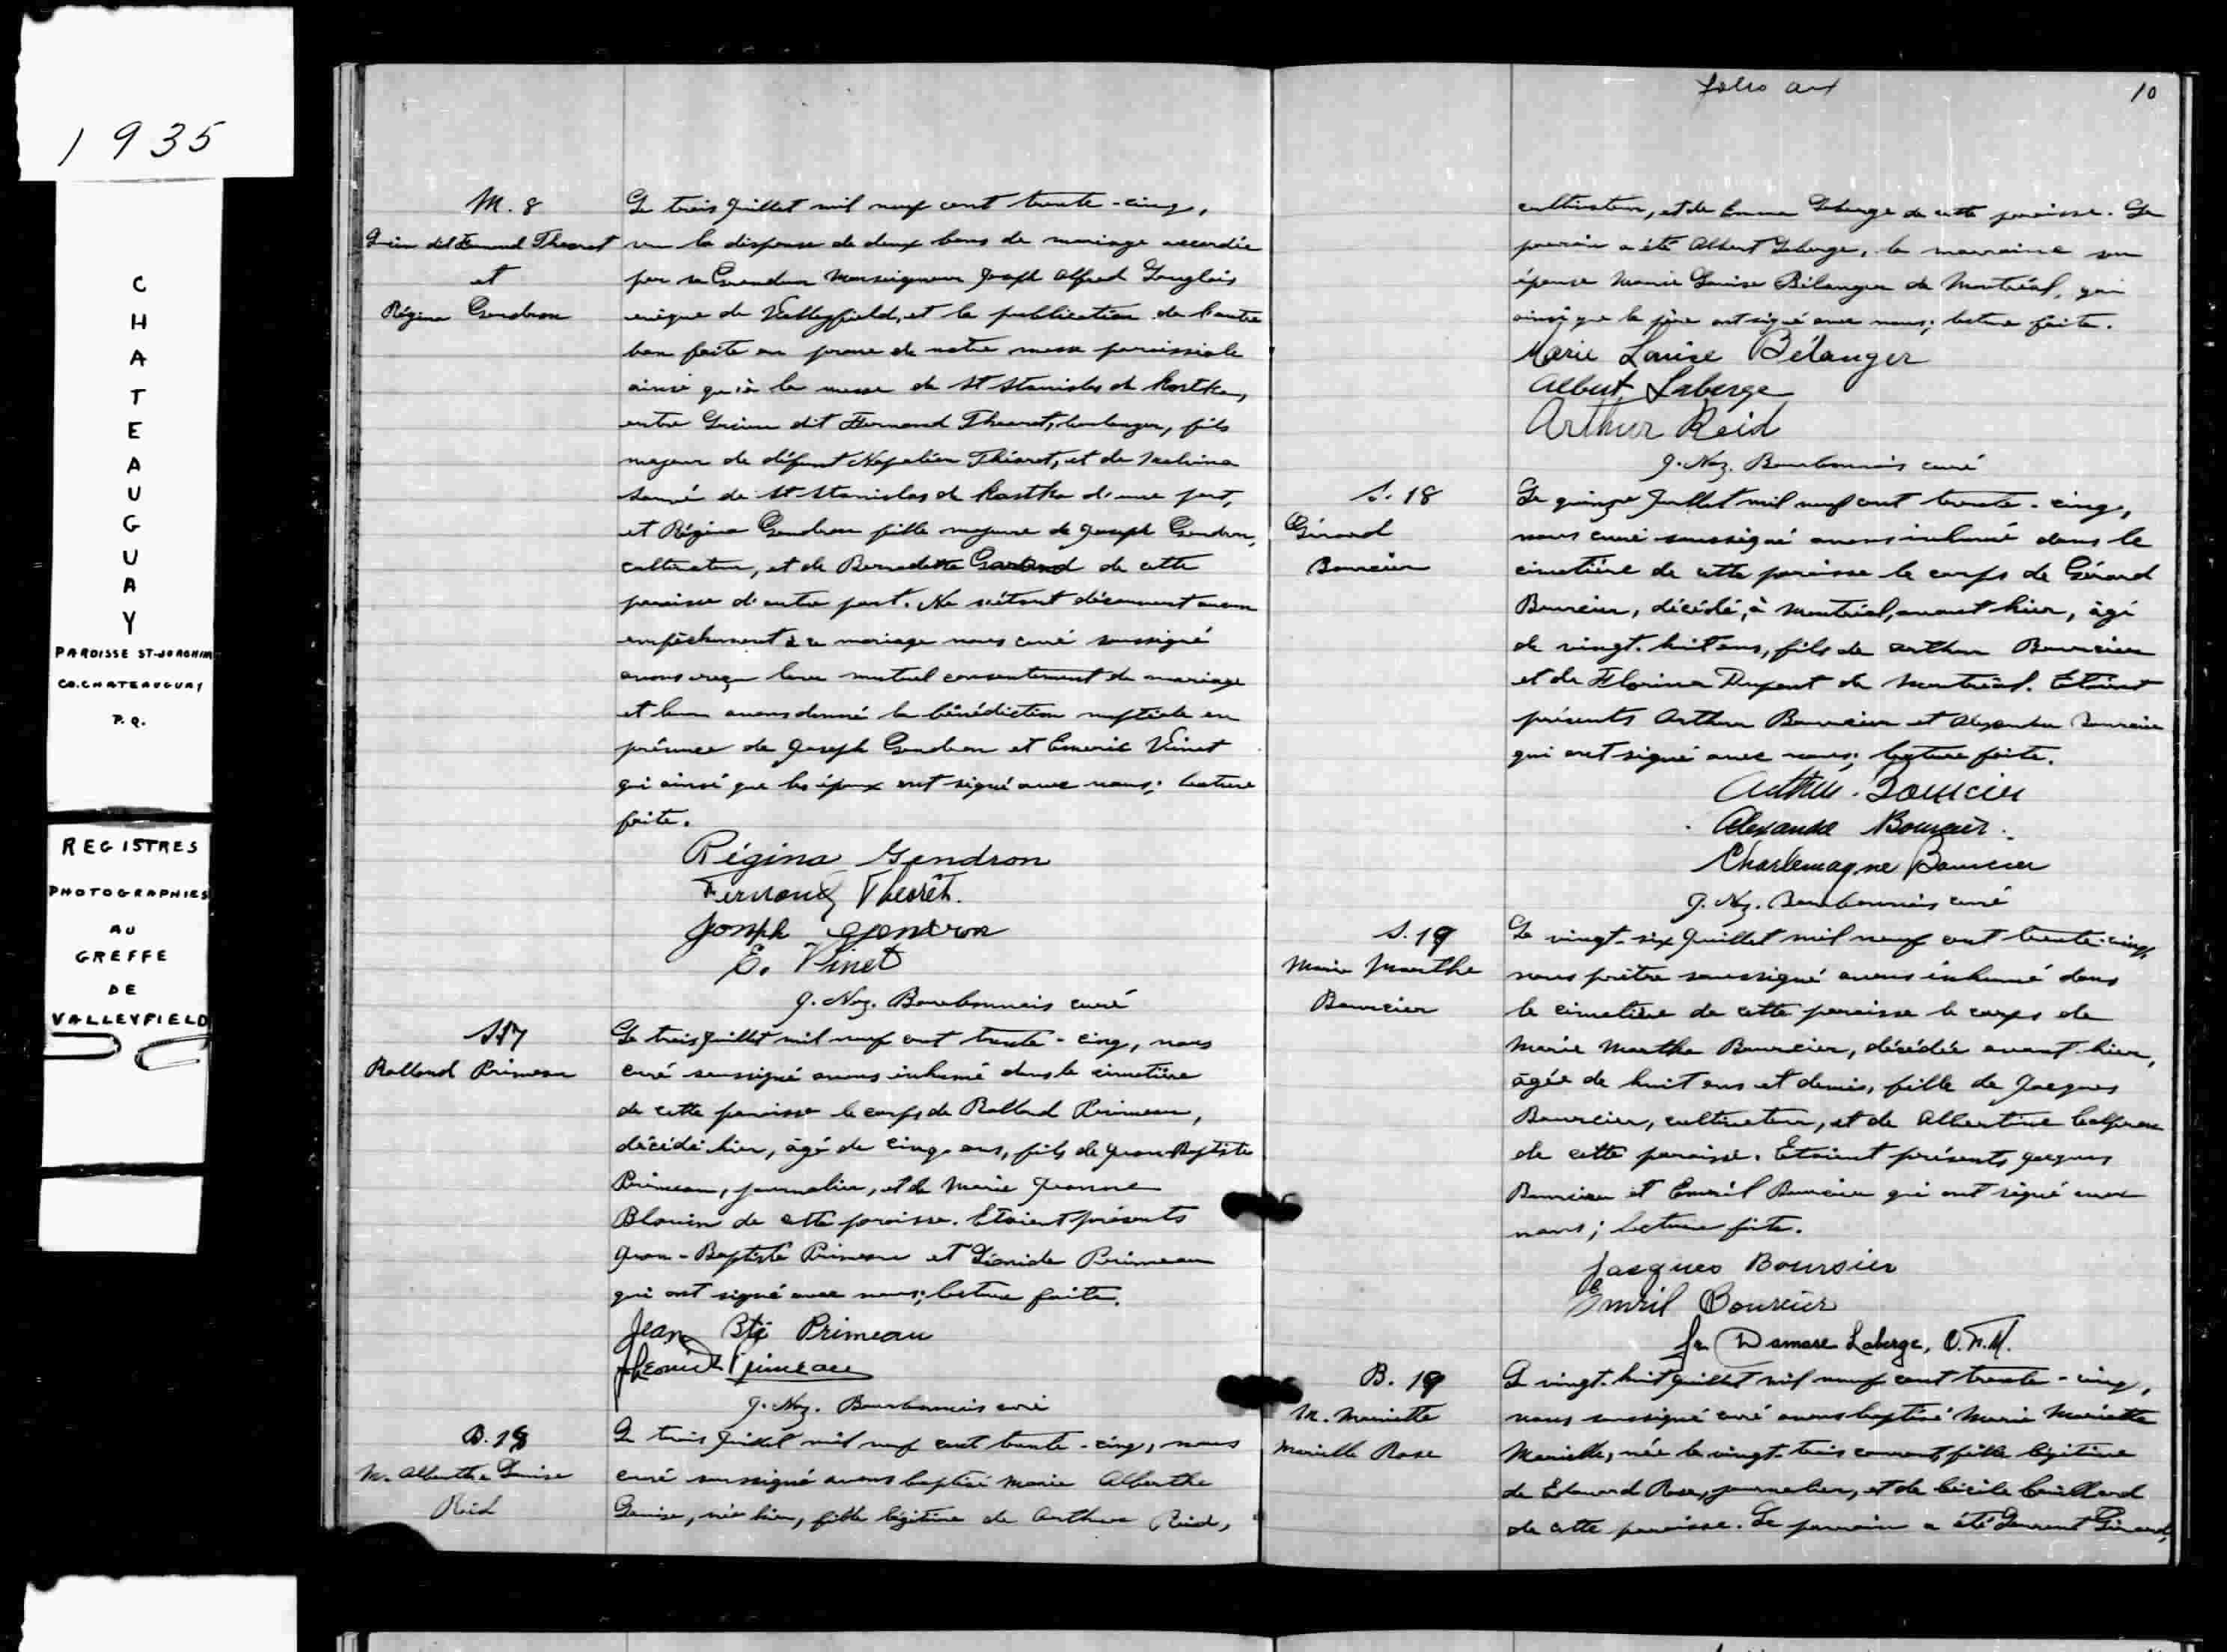 1935
CHATEAUGUAY
PAROISSE ST-JOACHIM
CO. CHATEAUGUAY
P.Q.
REGISTRES
PHOTOGRAPHIES
AU
GREFFE
DE
VALLEYFIELD
M. 8
dit Fernand Theoret
et
Régina Gendron
Le trois juillet mil neuf cent trente-cinq,
vu la dispense de deux bans de mariage accordée
par sa Grandeur Monseigneur Joseph Alfred Langlois
evêque de Valleyfield, et la publication de l'autre
ban faite au prone de notre messe paroissiale
ainsi qu'à la messe de St Stanislas de Kostka,
entre dit Fernand Theoret, boulanger, fils
majeur de défunt Napoléon Théoret, et de Malvina
Sauvé de St Stanislas de Kostka d'une part,
et Régina Gendron fille majeure de Joseph Gendron,
cultivateur, et de Bernadette de cette
paroisse d'autre part. Ne s'étant découvert aucun
empêchement à ce mariage nous curé soussigné
avons reçu leur mutuel consentement de mariage
et leur avons donné la bénédiction nuptiale en
présence de Joseph Gendron et Emeric Vinet
qui ainsi que les époux ont signé avec nous; lecture
faite.
Régina Gendron
Fernand Theorêt.
Joseph Gendron
E. Vinet
J. Naz. Bourbonnais curé
S 17
Rolland Primeau
Le trois juillet mil neuf cent trente-cinq, nous
curé soussigné avons inhumé dans le cimetière
de cette paroisse le corps de Rolland Primeau,
décédé hier, âgé de cinq ans, fils de Jean-Baptiste
Primeau, journalier, et de Marie Jeanne
Blouin de cette paroisse. Etaient présents
Jean-Baptiste Primeau et Léonide Primeau
qui ont signé avec nous; lecture faite.
Jean Bte Primeau
Leonide Primeau
J. Naz. Bourbonnais curé
B. 18
M. Alberthe Denise
Reid
Le trois juillet mil neuf cent trente-cinq, nous
curé soussigné avons baptisé Marie Alberthe
Denise, née hier, fille légitime de Arthur Reid,
folio
10
cultivateur, et de Emma Laberge de cette paroisse. Le
parrain a été Albert Laberge, la marraine son
épouse Marie Louise Bélanger de Montréal, qui
ainsi que le père ont signé avec nous; lecture faite.
Marie Louise Bélanger
Albert Laberge
Arthur Reid
J. Naz. Bourbonnais curé
S. 18
Gérard
Bourcier
Le quinze juillet mil neuf cent trente-cinq,
nous curé soussigné avons inhumé dans le
cimetière de cette paroisse le corps de Gérard
Bourcier, décédé, à Montréal, avant hier, âgé
de vingt-huit ans, fils de Arthur Bourcier
et de Florina Dupont de Montréal. Etaient
présents Arthur Bourcier et Alexandre Bourcier
qui ont signé avec nous; lecture faite.
Arthur Bourcier
Alexandre Bourcier
Charlemagne Bourcier
J. Naz. Bourbonnais curé
S. 19
Marie Marthe
Bourcier
Le vingt-six juillet mil neuf cent trente-cinq,
nous prêtre soussigné avons inhumé dans
le cimetière de cette paroisse le corps de
Marie Marthe Bourcier, décédée avant hier,
âgée de huit ans et demie, fille de Jacques
Bourcier, cultivateur, et de Albertine
de cette paroisse. Etaient présents Jacques
Bourcier et Emeril Bourcier qui ont signé avec
nous; lecture faite.
Jacques Boursier
Emeril Bourcier
fr. Damase Laberge, O.F.M.
B. 19
M. Mariette
Marielle Rose
Le vingt-huit juillet mil neuf cent trente-cinq,
nous soussigné curé avons baptisé Marie Mariette
Marielle, née le vingt-trois courant, fille légitime
de Edouard Rose, journalier, et de Cécile
de cette paroisse. Le parrain a été Laurent Girard,